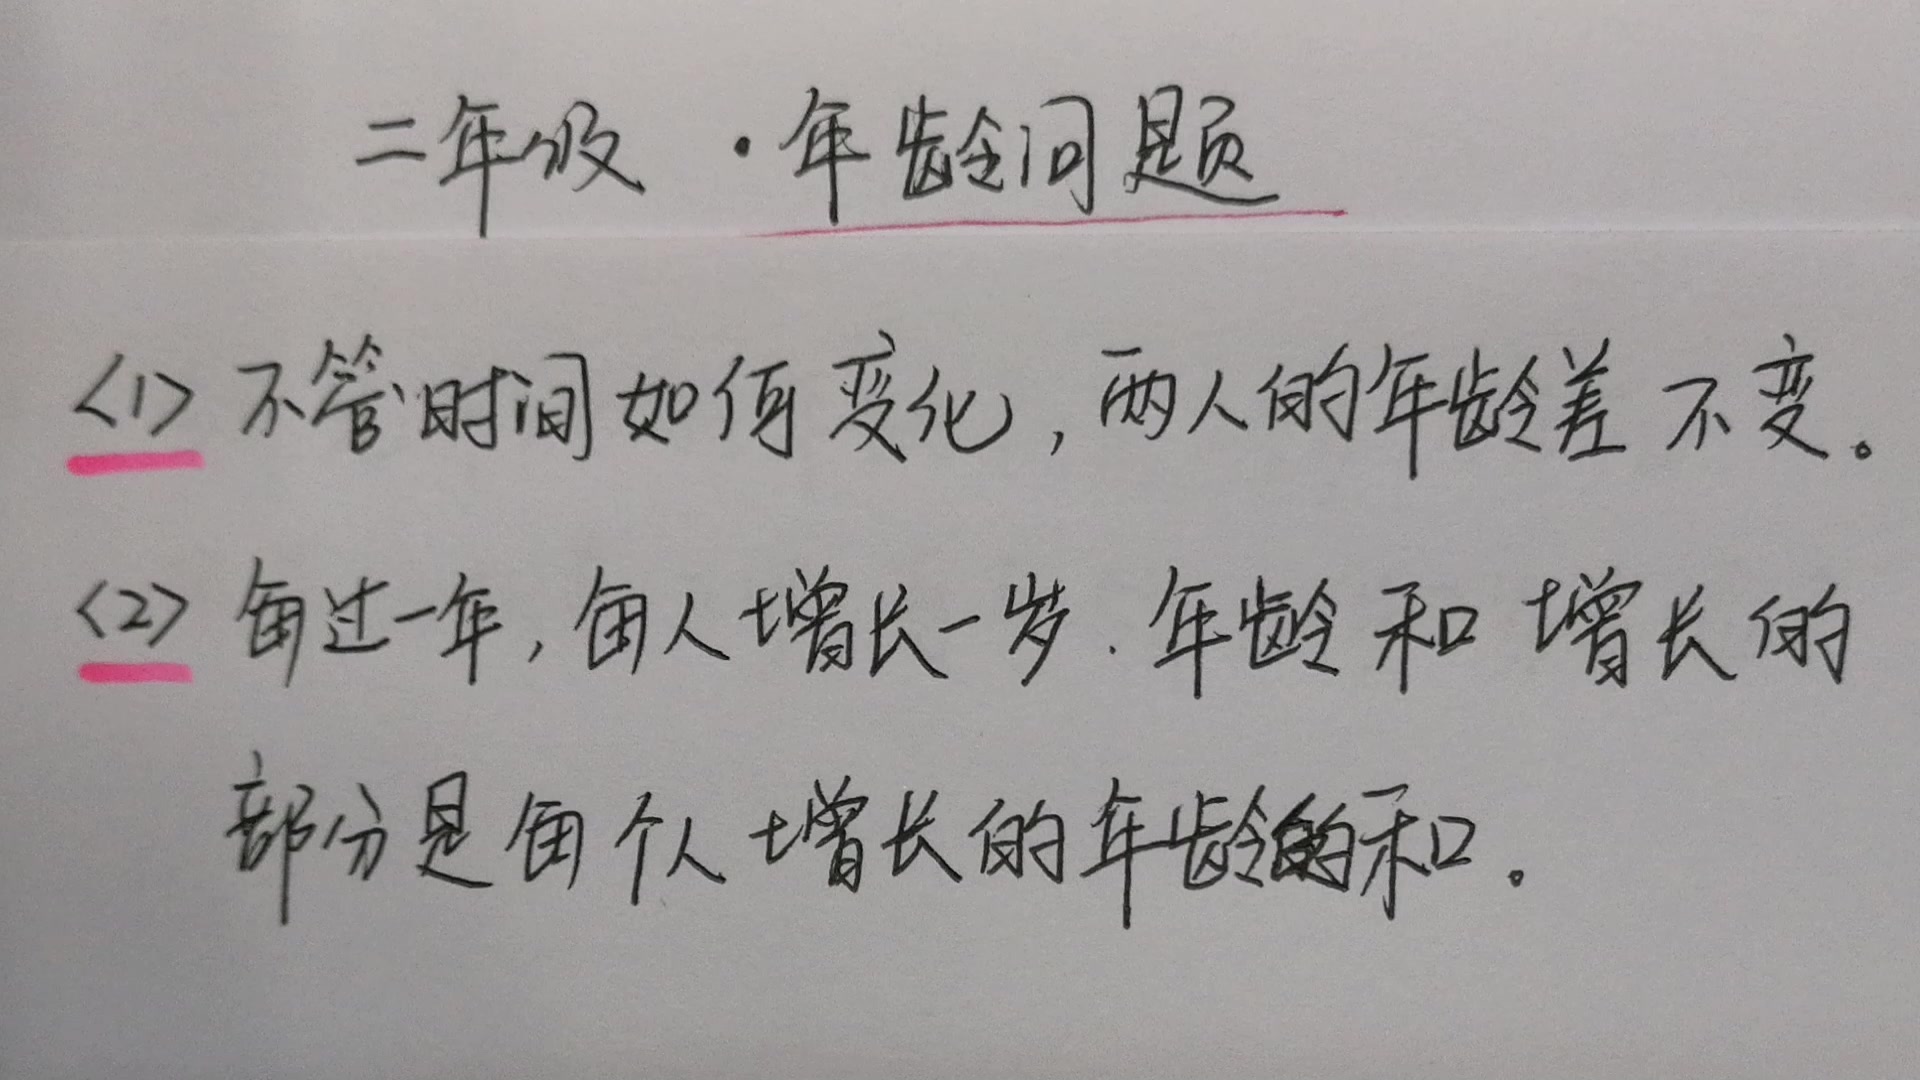 二年级 ·年龄问题
<1> 不管时间如何变化,两人的年龄差不变。
<2> 每过一年,每人增长一岁.年龄和增长的
部分是每个人增长的年龄的和。